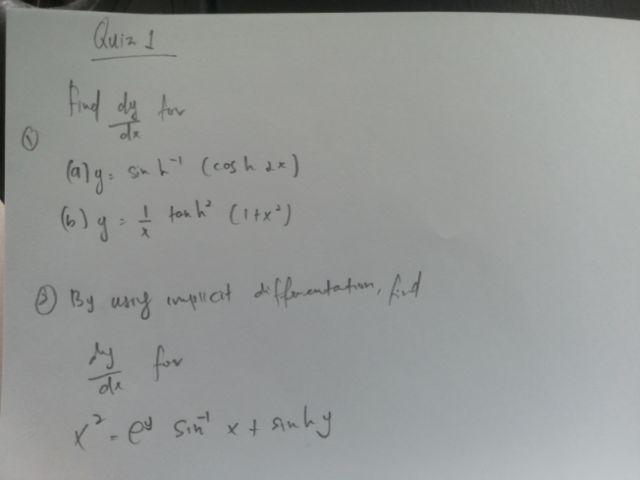 Quiz 1
Find dy/dx for
①
(a) y = sinh⁻¹ (cosh 2x)
(b) y = 1/x tanh² (1+x²)
② By using implicit differentiation, find
dy/dx for
x² = e^y sin⁻¹ x + sinh y